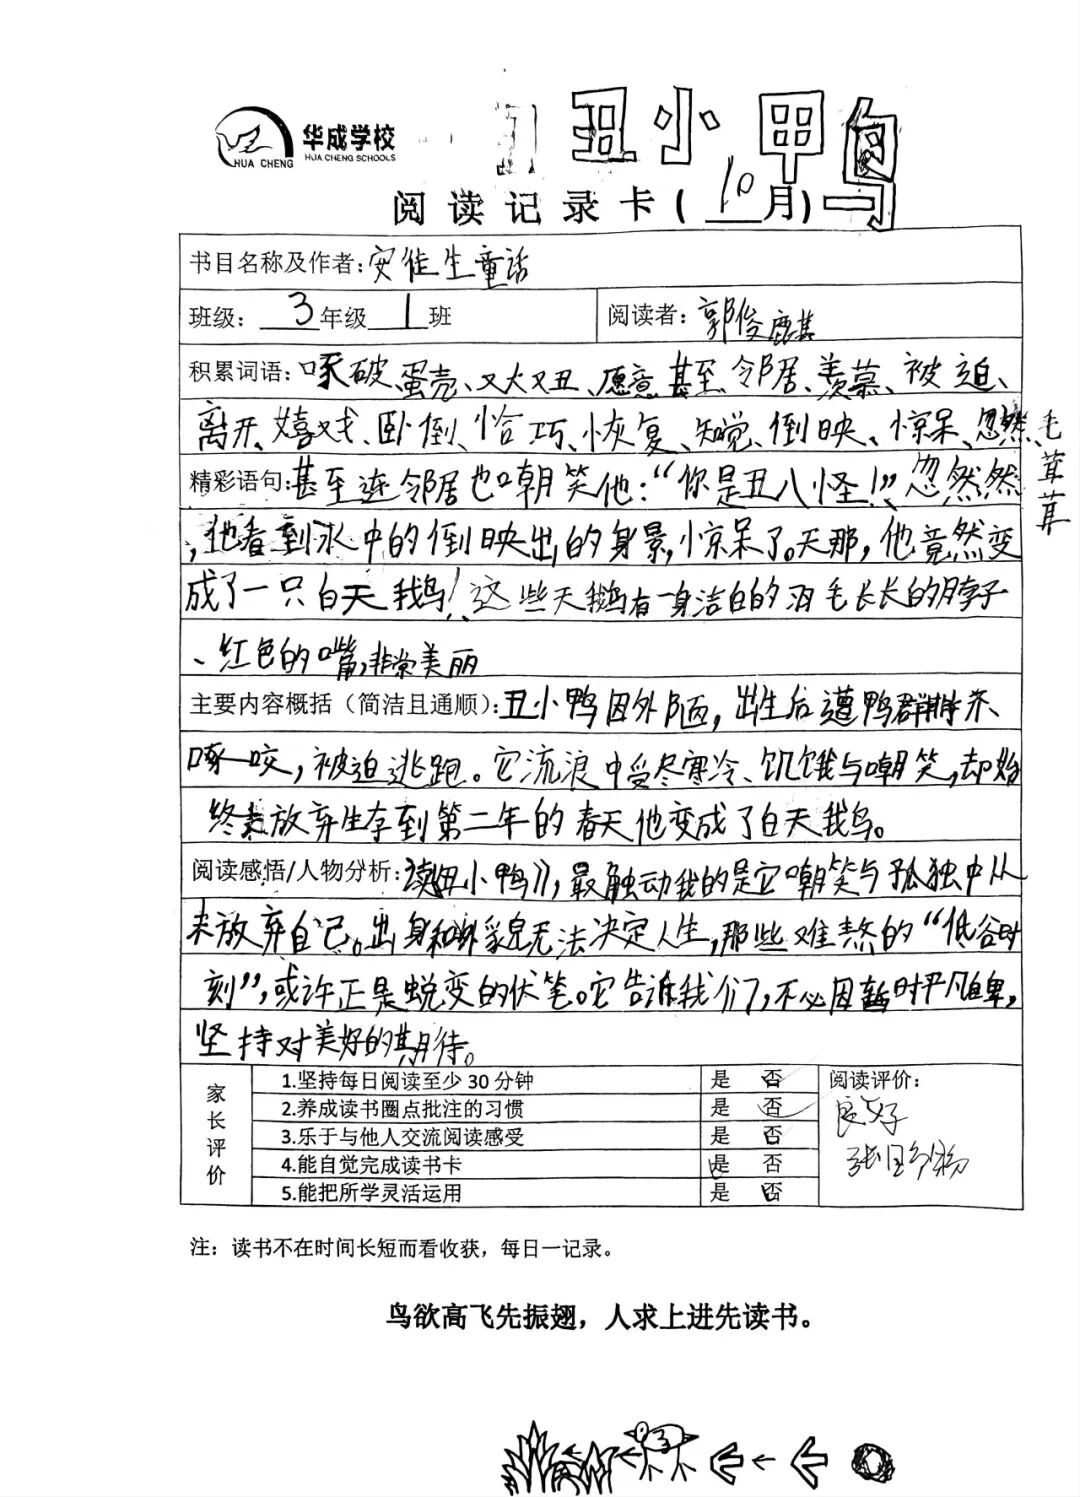 丑小鸭
华成学校
HUA CHENG
HUA CHENG SCHOOLS
阅读记录卡(10月)
书目名称及作者:安徒生童话
班级:3年级1班
阅读者:郭俊麒
积累词语:啄破、蛋壳、又大又丑、愿意、甚至、邻居、羡慕、被迫、
离开、嬉戏、卧倒、恰巧、恢复、知觉、倒映、惊呆、忽然、毛茸茸
精彩语句:甚至连邻居也嘲笑他:“你是丑八怪!”忽然然
,他看到水中的倒映出的身景,惊呆了。天那,他竟然变
成了一只白天鹅!这些天鹅有一身洁白的羽毛长长的脖子
、红色的嘴,非常美丽
主要内容概括(简洁且通顺):丑小鸭因外陋,出生后遭鸭群排斥、
啄咬,被迫逃跑。它流浪中受尽寒冷、饥饿与嘲笑,却始
终放弃生存到第二年的春天他变成了白天鹅。
阅读感悟/人物分析:读《丑小鸭》,最触动我的是它嘲笑与孤独中从
未放弃自己。出身和外貌无法决定人生,那些难熬的“低谷时
刻”,或许正是蜕变的伏笔。它告诉我们,不必因暂时平凡自卑,
坚持对美好的期待。
家长评价
1.坚持每日阅读至少30分钟 是 否
2.养成读书圈点批注的习惯 是 否
3.乐于与他人交流阅读感受 是 否
4.能自觉完成读书卡 是 否
5.能把所学灵活运用 是 否
阅读评价:
良好
注:读书不在时间长短而看收获,每日一记录。
鸟欲高飞先振翅,人求上进先读书。